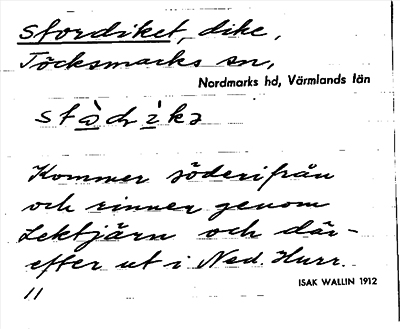 Stordiket, dike,
Töcksmarks sn,
Nordmarks hd, Värmlands län
Kommer söderifrån
och rinner genom
Lektjärn och där-
efter ut i Ned. Hurr.
ISAK WALLIN 1912
11